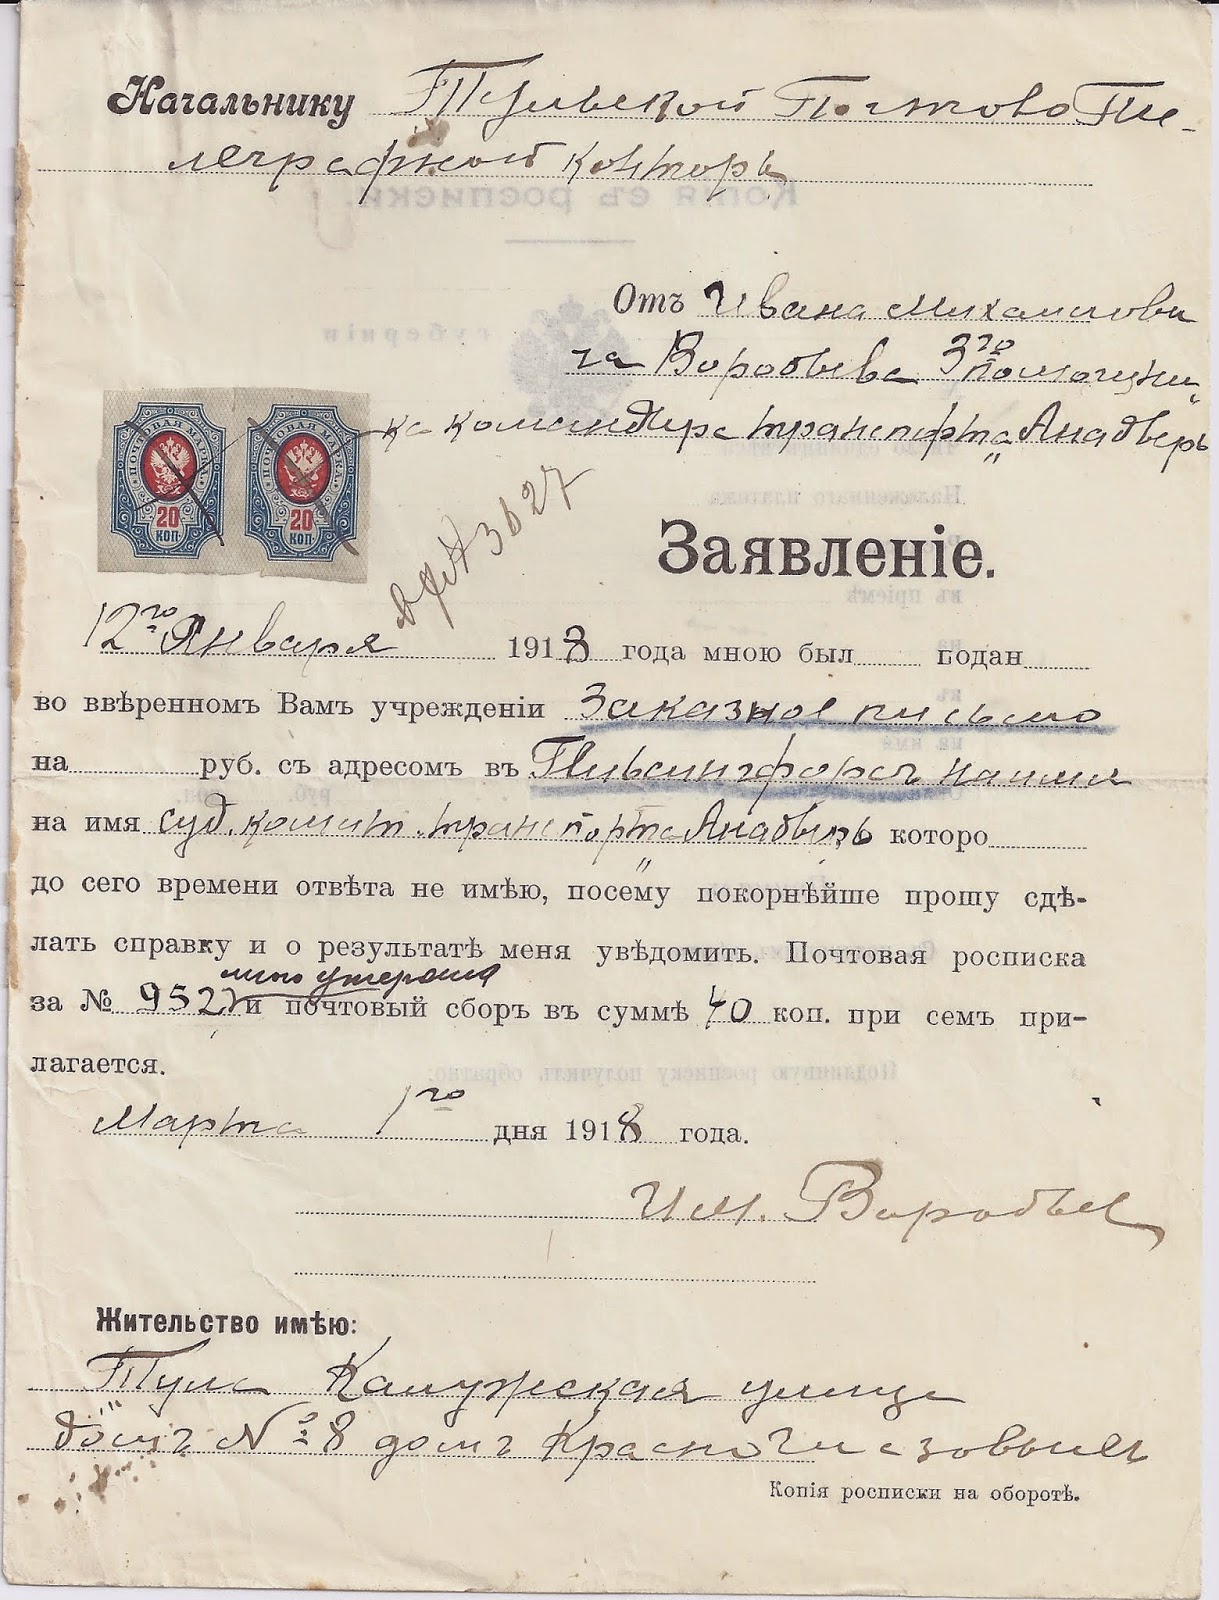 Начальнику Тульской Почтово Те-
леграфной конторы
Отъ Ивана Михайлови
ча Воробьева 3го помощни
ка командира транспорта „Анадырь
ПОЧТОВАЯ МАРКА
20
КОП
ПОЧТОВАЯ МАРКА
20
КОП.
3627
Заявленіе.
12го Января 1918 года мною былъ поданъ
во ввѣренномъ Вамъ учрежденіи Заказное письмо
на руб. съ адресомъ въ Гельсингфорсъ
на имя суд. комит. транспорта „Анадырь которо
до сего времени отвѣта не имѣю, посему покорнѣйше прошу сдѣ-
лать справку и о результатѣ меня увѣдомить. Почтовая росписка
мною утеряна
за № 952 и почтовый сборъ въ суммѣ 40 коп. при семъ при-
лагается.
Марта 1го дня 1918 года.
И.М. Воробьев
Жительство имѣю:
Тула Калужская улица
домъ № 8 домъ
Копія росписки на оборотѣ.